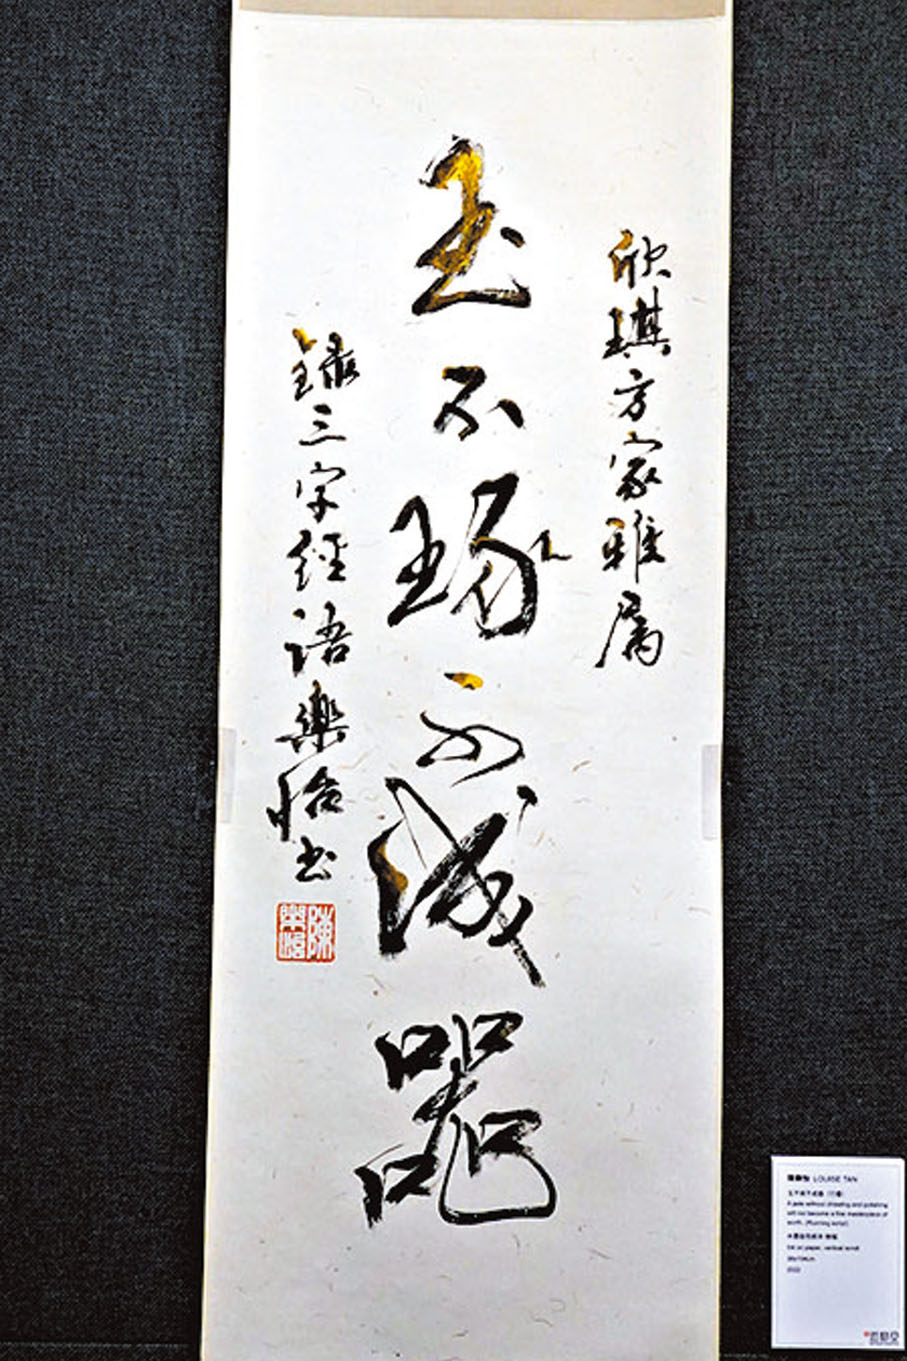 欣琪方家雅属
玉不琢不成器
録三字經語樂怡書
陳樂怡
陳樂怡 LOUISE TAN
玉不琢不成器 (行書)
A jade without chiseling and polishing
will not become a fine masterpiece of
worth. (Running script)
Ink on paper, vertical scroll
2022